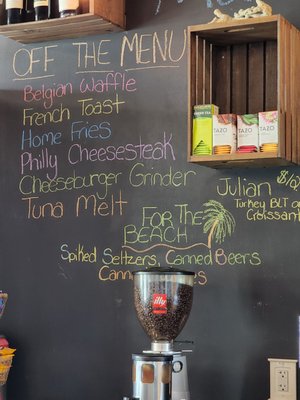 OFF THE MENU
Belgian Waffle
French Toast
Home Fries
Philly Cheesesteak
Cheeseburger Grinder
Tuna Melt
TAZO
TAZO
TAZO
Julian
Turkey BLT
Croissant
FOR THE
BEACH
Spiked Seltzers, Canned Beers
illy